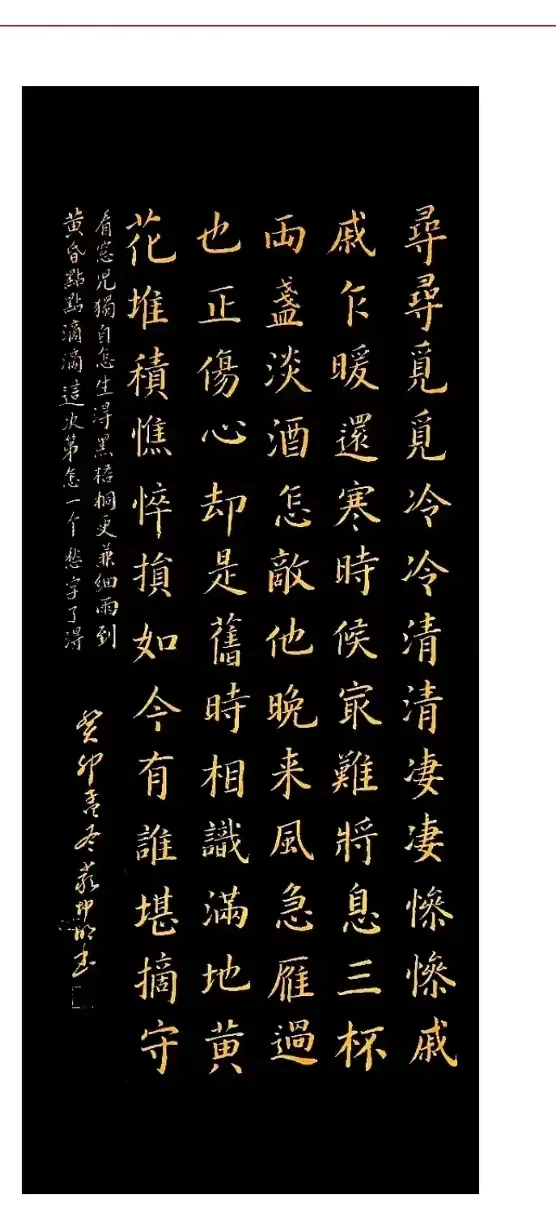 尋尋覓覓冷冷清清凄凄慘慘戚
戚乍暖還寒時候冣難將息三杯
两盞淡酒怎敵他晚来風急雁過
也正傷心却是舊時相識滿地黄
花堆積憔悴損如今有誰堪摘守
着窓兒獨自怎生得黑梧桐更兼細雨到
黄昏點點滴滴這次第怎一个愁字了得
癸卯孟冬坤明書